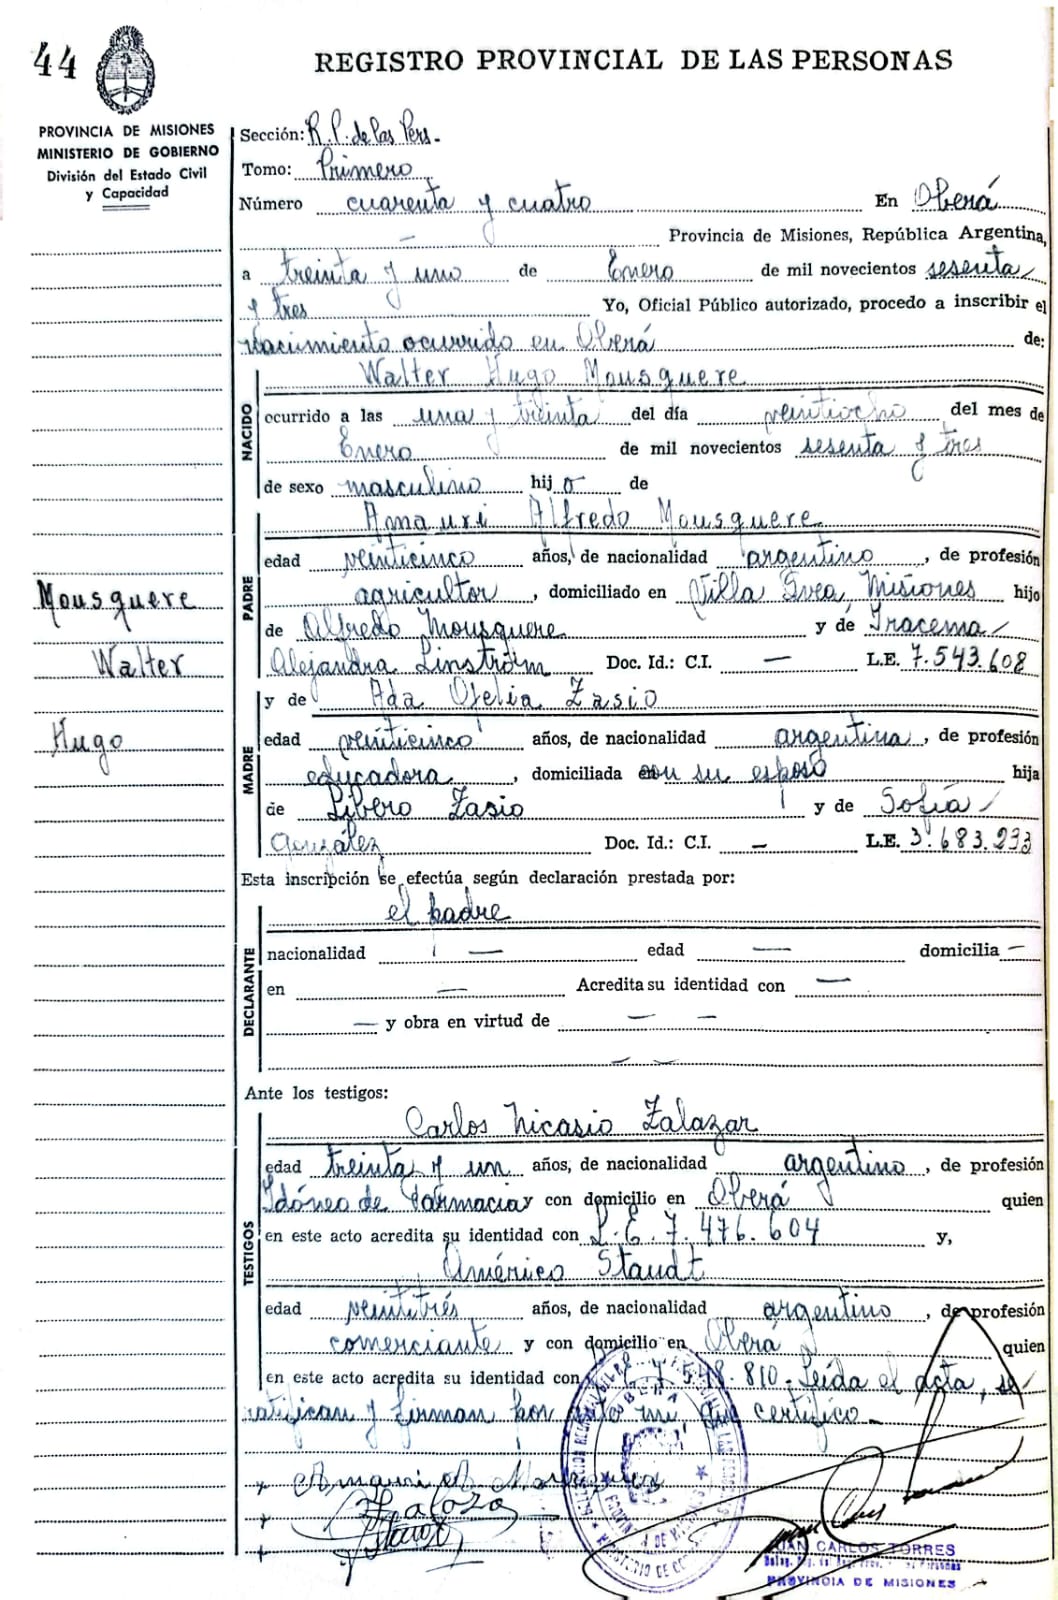 44
REGISTRO PROVINCIAL DE LAS PERSONAS
PROVINCIA DE MISIONES
MINISTERIO DE GOBIERNO
División del Estado Civil
y Capacidad
Sección: R. P. de las Pers.
Tomo: Primero
Número cuarenta y cuatro En Oberá
Provincia de Misiones, República Argentina,
a treinta y uno de Enero de mil novecientos sesenta
y tres Yo, Oficial Público autorizado, procedo a inscribir el
Nacimiento ocurrido en Oberá de:
NACIDO
Walter Hugo Mousquere
ocurrido a las una y treinta del día veintiocho del mes de
Enero de mil novecientos sesenta y tres
de sexo masculino hijo de
PADRE
Amauri Alfredo Mousquere
edad veinticinco años, de nacionalidad argentino, de profesión
agricultor, domiciliado en Villa Svea, Misiones hijo
de Alfredo Mousquere y de Iracema
Alejandra Linström Doc. Id.: C.I. — L.E. 7.543.608
Mousquere
Walter
Hugo
MADRE
y de Ada Ofelia Zasio
edad veinticinco años, de nacionalidad argentina, de profesión
educadora, domiciliada con su esposo hija
de Líbero Zasio y de Sofía
González Doc. Id.: C.I. — L.E. 3.683.293
Esta inscripción se efectúa según declaración prestada por:
DECLARANTE
el padre
nacionalidad — edad — domicilia —
en — Acredita su identidad con —
— y obra en virtud de — —
— —
Ante los testigos:
TESTIGOS
Carlos Nicasio Zalazar
edad treinta y un años, de nacionalidad argentino, de profesión
Idóneo de Farmacia y con domicilio en Oberá quien
en este acto acredita su identidad con L.E. 7.476.604 y,
Américo Staudt
edad veintitrés años, de nacionalidad argentino, de profesión
comerciante y con domicilio en Oberá quien
en este acto acredita su identidad con 7.548.810. Leída el acta, se
ratifican y firman por ante mí, que certifico.
JUAN CARLOS TORRES
PROVINCIA DE MISIONES